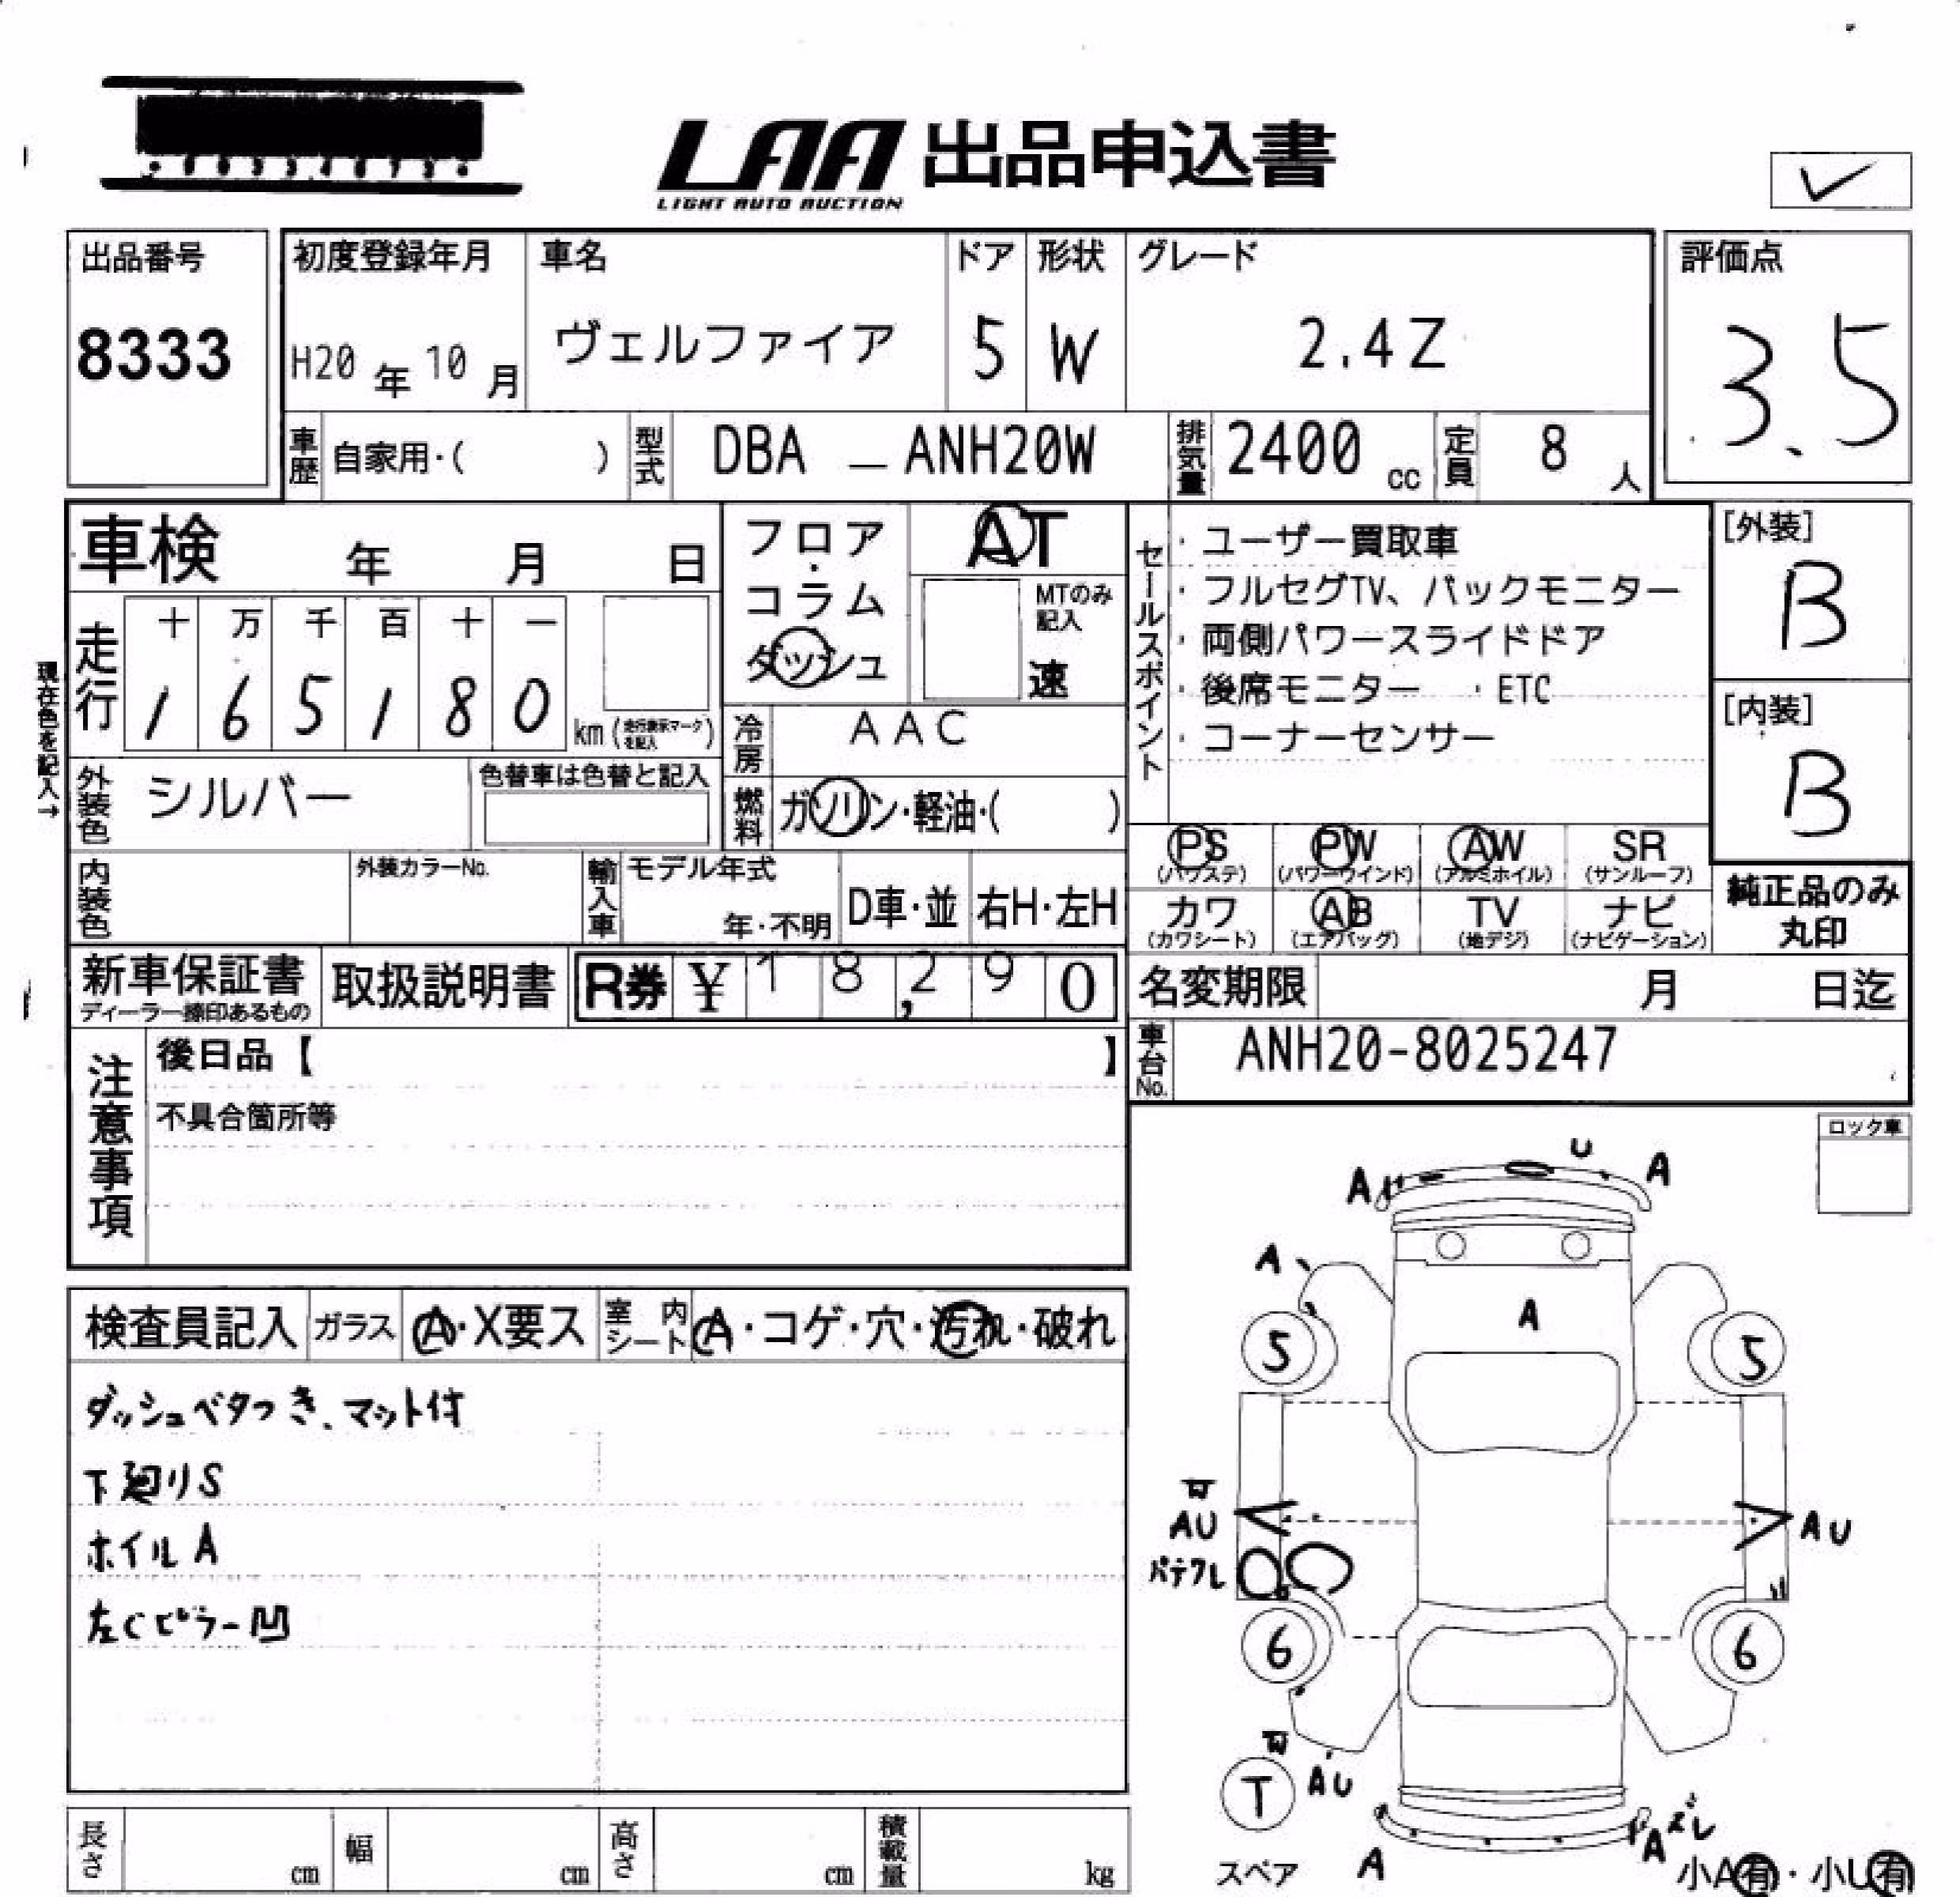 LAA 出品申込書
LIGHT AUTO AUCTION
出品番号
8333
初度登録年月
H20年10月
車名
ヴェルファイア
ドア
5
形状
W
グレード
2.4Z
評価点
3.5
車歴
自家用・( )
型式
DBA — ANH20W
排気量
2400 cc
定員
8 人
車検 年 月 日
フロア・コラム
ダッシュ
AT
MTのみ記入
速
セールスポイント
・ユーザー買取車
・フルセグTV、バックモニター
・両側パワースライドドア
・後席モニター ・ETC
・コーナーセンサー
[外装]
B
[内装]
B
現在色を記入→
走行
十 万 千 百 十 一
1 6 5 1 8 0 km
冷房
AAC
外装色
シルバー
色替車は色替と記入
燃料
ガソリン・軽油・( )
PS
(パワステ)
PW
(パワーウインド)
AW
(アルミホイル)
SR
(サンルーフ)
カワ
(カワシート)
AB
(エアバッグ)
TV
(地デジ)
ナビ
(ナビゲーション)
純正品のみ
丸印
内装色
外装カラーNo.
輸入車
モデル年式
年・不明
D車・並
右H・左H
新車保証書
ディーラー捺印あるもの
取扱説明書
R券 ¥ 18,290
名変期限 月 日迄
注意事項
後日品【 】
不具合箇所等
車台No.
ANH20-8025247
ロック車
検査員記入
ガラス
A・X要ス
室内シート
A・コゲ・穴・汚れ・破れ
ダッシュベタつき、マット付
下廻りS
ホイルA
左Cピラー凹
A U A
A
A
5 5
AU AU
パテワレ
6 6
T AU
スペア
A A ズレ
小A有・小U有
長さ cm
幅 cm
高さ cm
積載量 kg